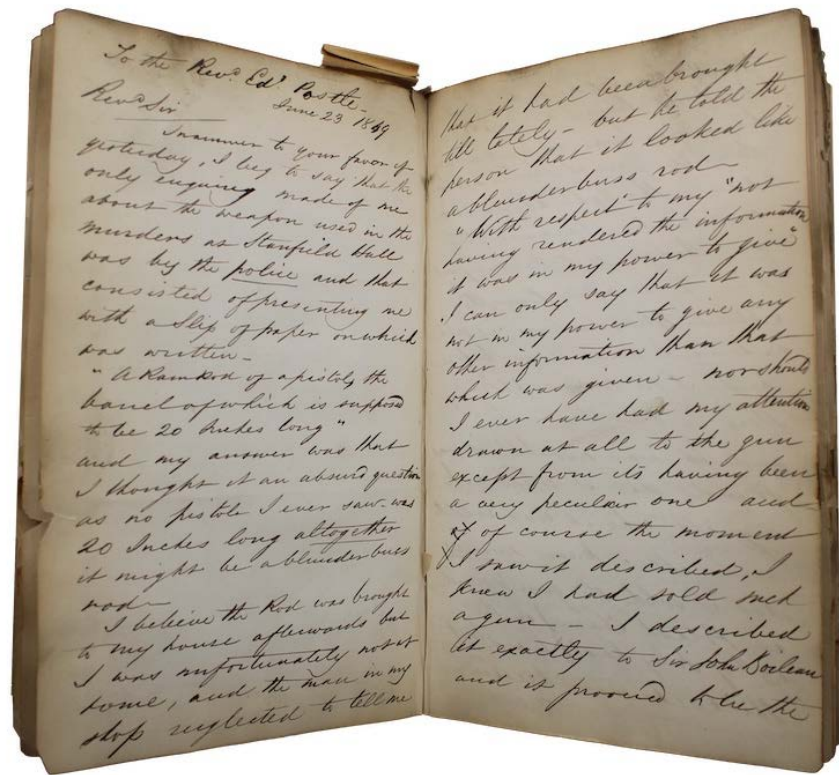 To the Revd. Edd. Postle -
June 23 1849
Revd Sir
In answer to your favor of
yesterday, I beg to say that the
only enquiry made of me
about the weapon used in the
murders at Stanfield Hall
was by the police and that
consisted of presenting me
with a slip of paper on which
was written -
" A Ramrod of a pistol, the
barrel of which is supposed
to be 20 Inches long "
and my answer was that
I thought it an absurd question
as no pistol I ever saw - was
20 Inches long altogether
it might be a blunderbuss
rod -
I believe the Rod was brought
to my house afterwards but
I was unfortunately not at
home, and the man in my
shop neglected to tell me
that it had been brought
till lately - but he told the
person that it looked like
a blunderbuss rod -
"With respect to my "not
having rendered the information
it was in my power to give"
I can only say that it was
not in my power to give any
other information than that
which was given - nor should
I ever have had my attention
drawn at all to the gun
except from its having been
a very peculiar one and
of course the moment
I saw it described, I
knew I had sold such
a gun - I described
it exactly to Sir John Boileau
and it prooved to be the